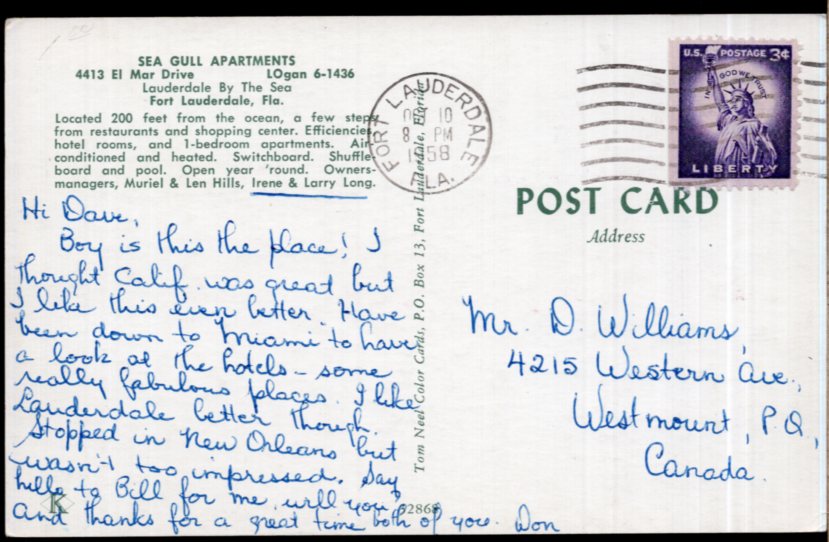 SEA GULL APARTMENTS
4413 El Mar Drive LOgan 6-1436
Lauderdale By The Sea
Fort Lauderdale, Fla.
Located 200 feet from the ocean, a few steps
from restaurants and shopping center. Efficiencies,
hotel rooms, and 1-bedroom apartments. Air-
conditioned and heated. Switchboard. Shuffle-
board and pool. Open year 'round. Owners-
managers, Muriel & Len Hills, Irene & Larry Long.
Hi Dave,
Boy is this the place! I
thought Calif. was great but
I like this even better. Have
been down to Miami to have
a look at the hotels - some
really fabulous places. I like
Lauderdale better though.
Stopped in New Orleans but
wasn't too impressed. Say
hello to Bill for me will you
and thanks for a great time both of you. Don
K
92868
Tom Neel Color Cards, P.O. Box 13, Fort Lauderdale, Florida
FORT LAUDERDALE
10
8 PM
1958
FLA.
U.S. POSTAGE 3¢
IN GOD WE TRUST
LIBERTY
POST CARD
Address
Mr. D. Williams,
4215 Western Ave.,
Westmount, P.Q,
Canada.